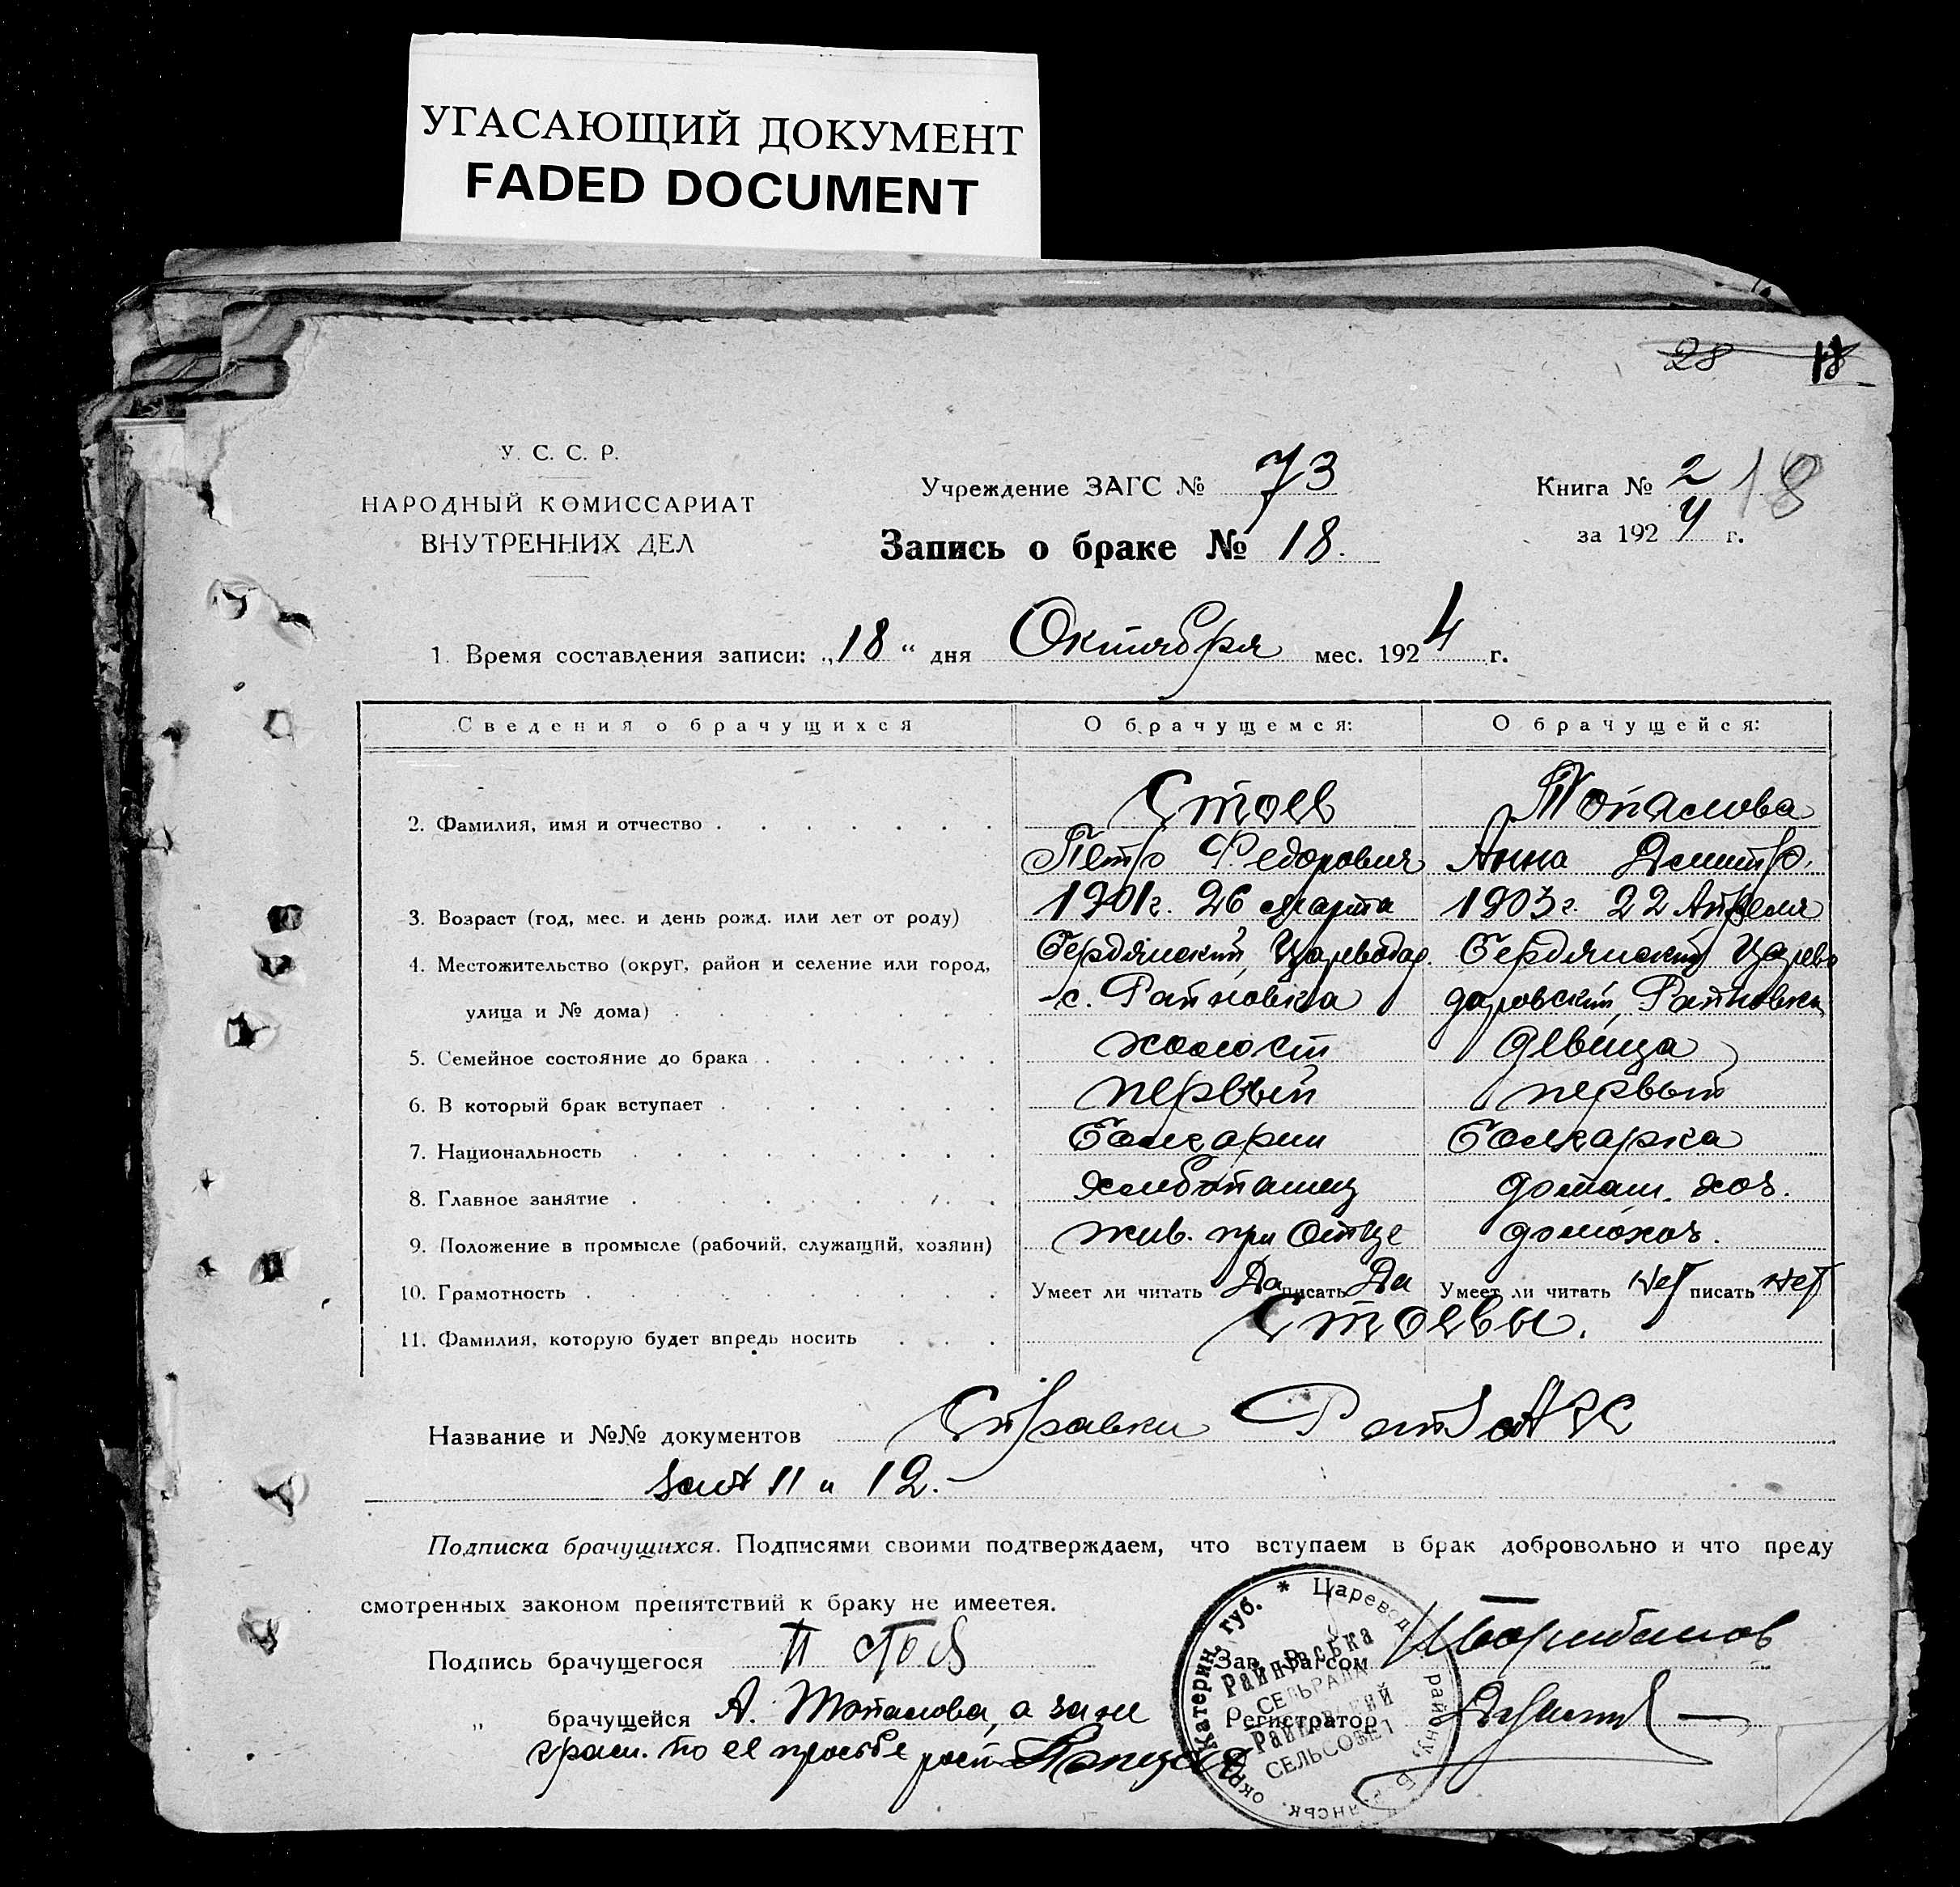 УГАСАЮЩИЙ ДОКУМЕНТ
FADED DOCUMENT
28 18
У. С. С. Р.
НАРОДНЫЙ КОМИССАРИАТ
ВНУТРЕННИХ ДЕЛ
Учреждение ЗАГС № 73
Запись о браке № 18.
Книга № 2 18
за 1924 г.
1. Время составления записи: „18“ дня Октября мес. 1924 г.
Сведения о брачущихся О брачущемся: О брачущейся:
2. Фамилия, имя и отчество Стоев Топалова
Петр Федорович Анна Дмитр.
3. Возраст (год, мес. и день рожд. или лет от роду) 1901 г. 26 Марта 1903 г. 22 Апреля
4. Местожительство (округ, район и селение или город, Бердянский, Цареводар. Бердянский Царево
улица и № дома) с. Райновка даровский, Райновка
5. Семейное состояние до брака холост девица
6. В который брак вступает первый первый
7. Национальность Болгарин Болгарка
8. Главное занятие хлебопашец домаш. хоз.
9. Положение в промысле (рабочий, служащий, хозяин) жив. при Отце домохоз.
10. Грамотность Умеет ли читать Да писать Да Умеет ли читать нет писать нет
11. Фамилия, которую будет впредь носить Стоевы.
Название и №№ документов Справки
11 и 12.
Подписка брачущихся. Подписями своими подтверждаем, что вступаем в брак добровольно и что преду
смотренных законом препятствий к браку не имеется.
Подпись брачущегося П Стоев
Зав. Загсом
„ брачущейся А. Топалова, а за не
Регистратор
грам. по ее просьбе рост
* Царевод. району, Бердянськ. окр. Катерин. губ.
Райнвська
СЕЛЬРАДА
Райновский
СЕЛЬСОВЕТ